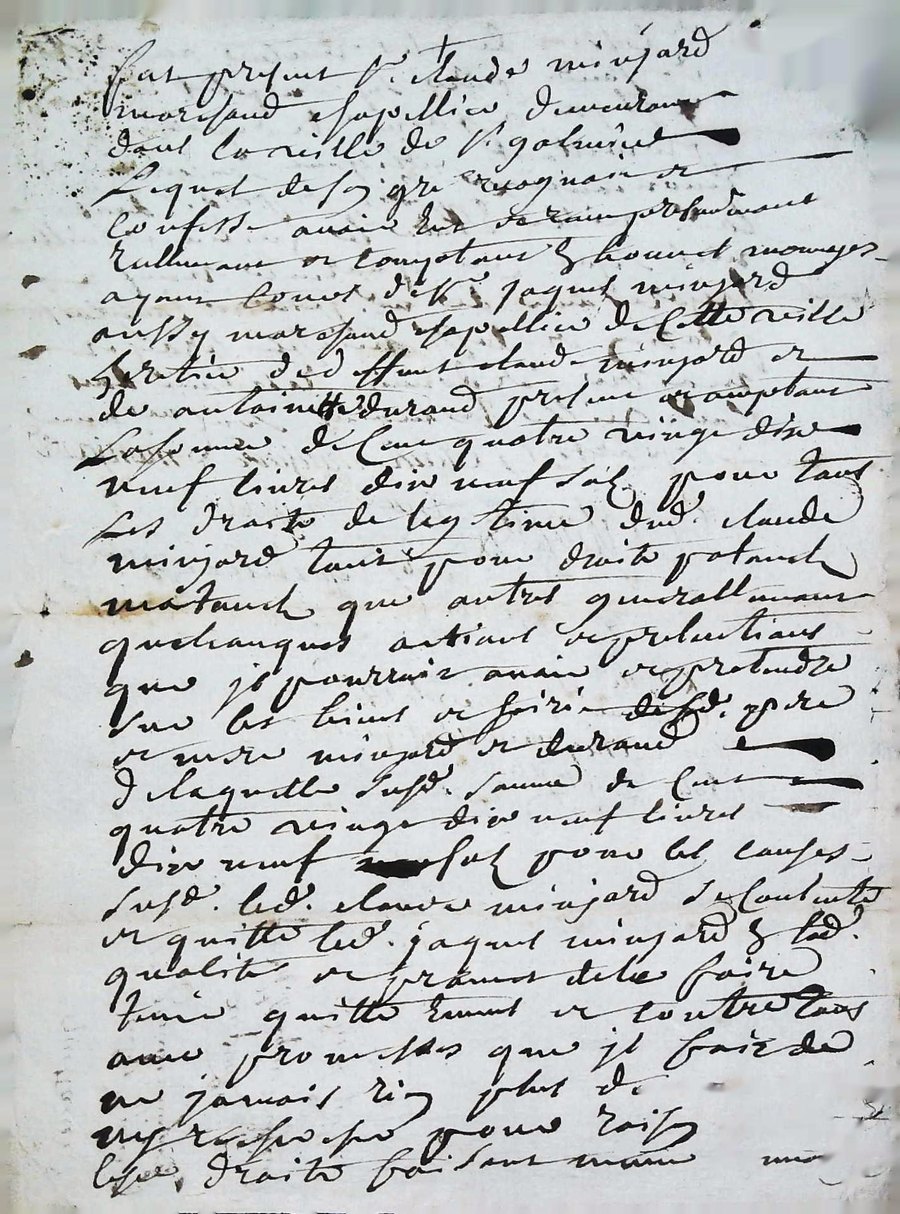 fut présent Sr. claude minjard
marchand chapellier demeurant
dans la ville de St galmier
Lequel de son gré recognoit et
confesse avoir Eut et reçu présentement
Rellement et comptant En bonnes monoyes
ayant cours de Sr. jaques minjard
aussy marchand chapellier de Cette ville
heretier de deffunt claude minjard et
de antoinette durand présent acceptant
La somme de Cent quatre vingt dix
neuf livres dix neuf sols pour tous
Les droits de legitime dud. claude
minjard tant pour droits paternels
maternels que autres generallement
quelconques actions et pretentions
que il pourroit avoir et pretendre
sur les biens et hoirie desd. pere
et mere minjard et durand
De laquelle susd. somme de Cent
quatre vingt dix neuf livres
dix neuf sols pour les causes
susd. led. claude minjard se Contente
et quitte led. jaques minjard En lad.
qualité et promet de le faire
tenir quitte Envers et contre tous
avec promesses que il fait de
ne jamais rien plus de
pour raison
droits faisant